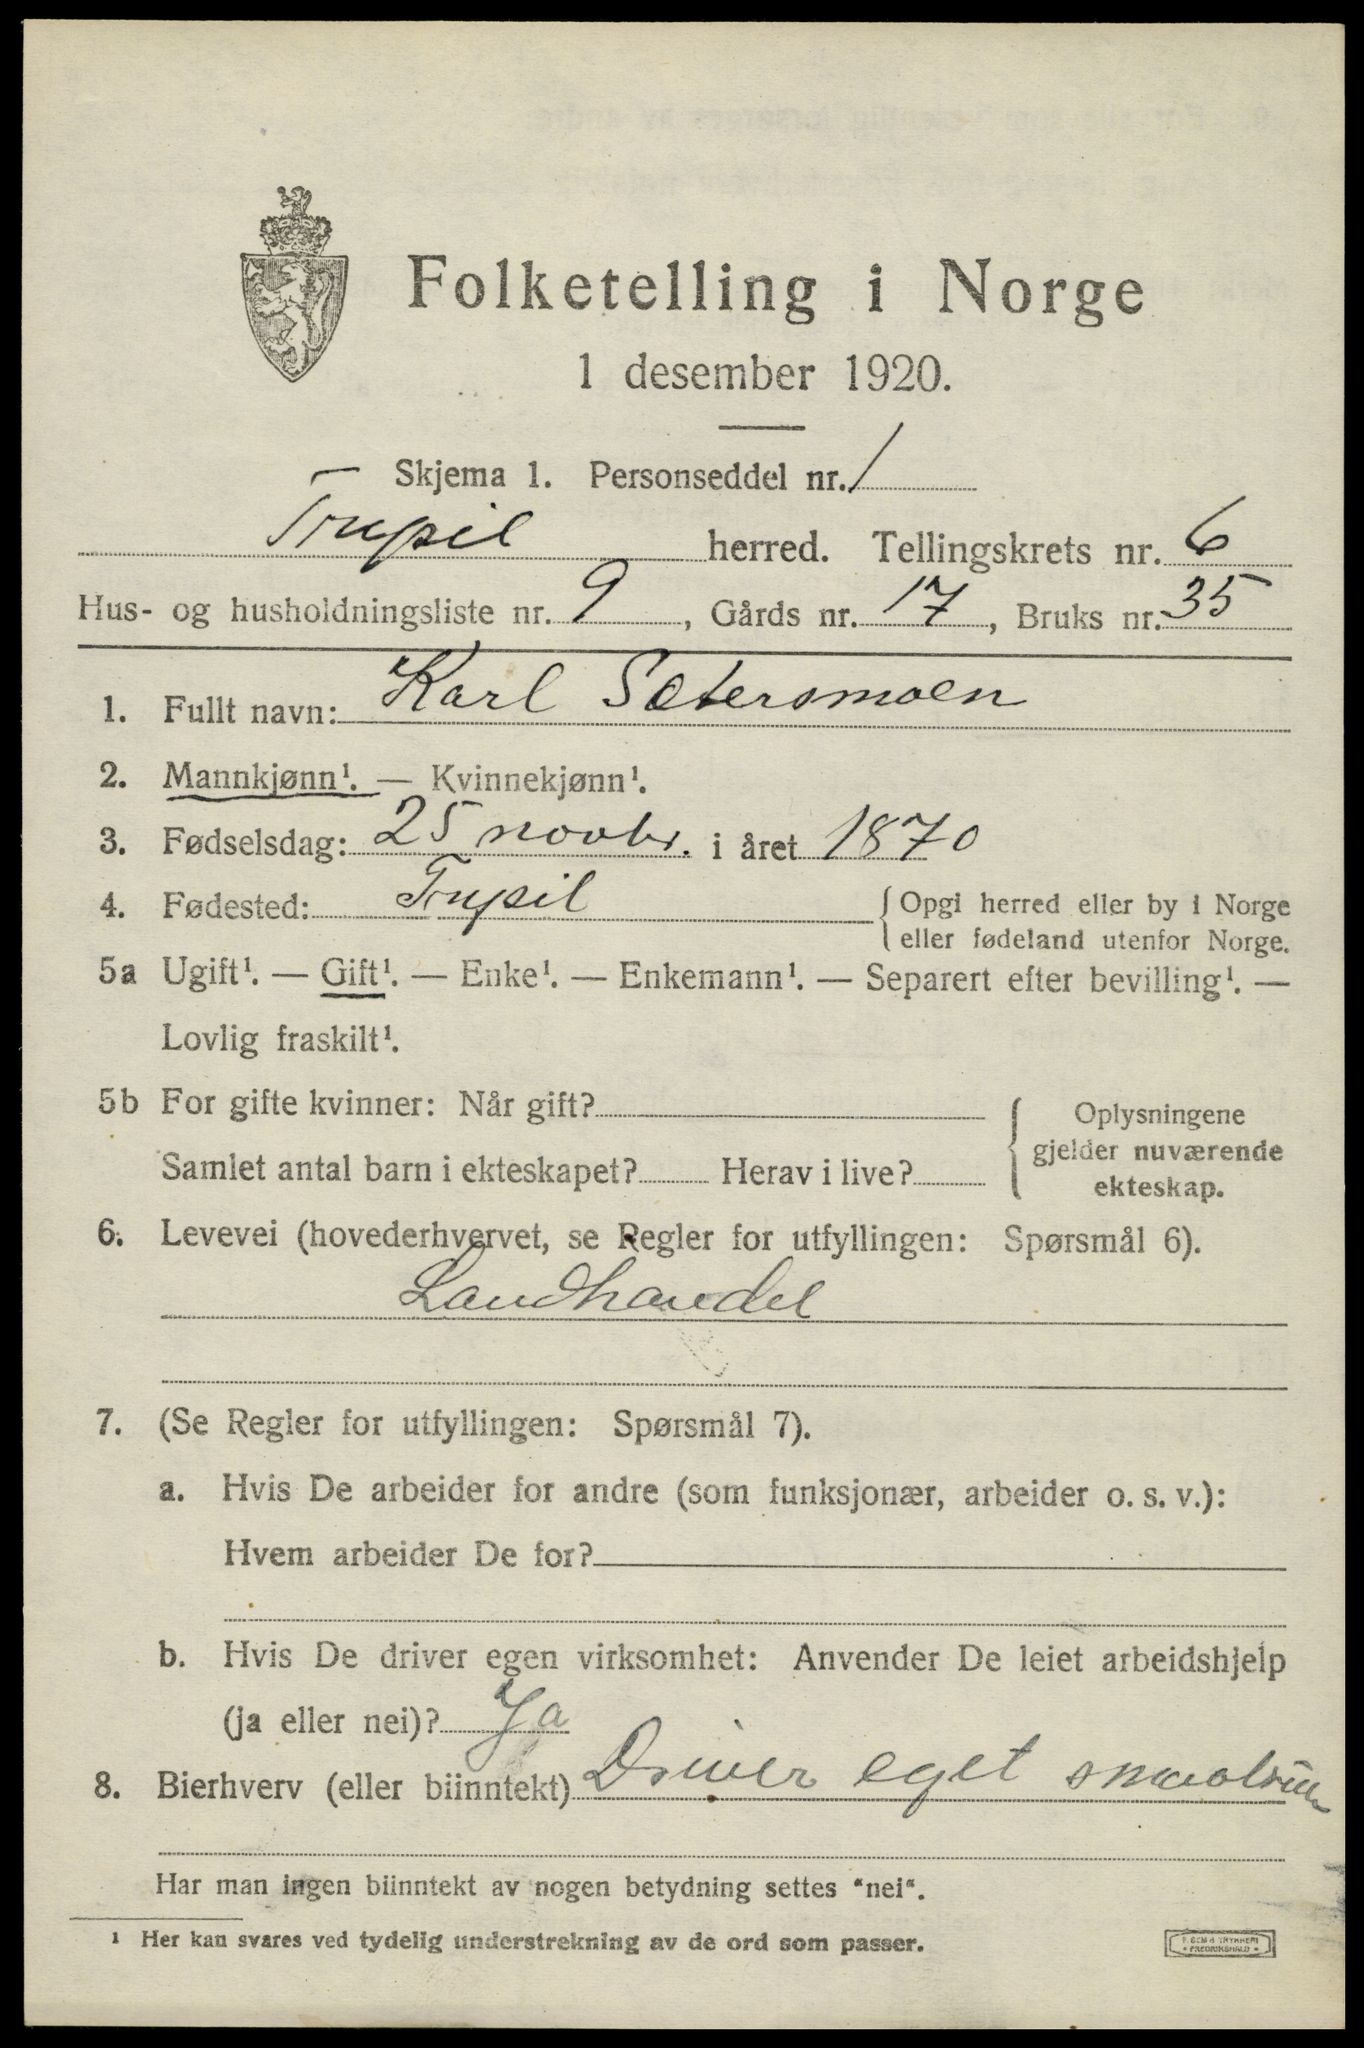 Folketelling i Norge
1 desember 1920.
Skjema 1. Personseddel nr. 1
Trysil herred. Tellingskrets nr. 6
Hus- og husholdningsliste nr. 9, Gårds nr. 17, Bruks nr. 35
1. Fullt navn: Karl Sætersmoen
2. Mannkjønn¹. — Kvinnekjønn¹.
3. Fødselsdag: 25 novbr. i året 1870
4. Fødested: Trysil { Opgi herred eller by i Norge
eller fødeland utenfor Norge.
5a Ugift¹. — Gift¹. — Enke¹. — Enkemann¹. — Separert efter bevilling¹. —
Lovlig fraskilt¹.
5b For gifte kvinner: Når gift? { Oplysningene
gjelder nuværende
Samlet antal barn i ekteskapet? Herav i live?
ekteskap.
6. Levevei (hovederhvervet, se Regler for utfyllingen: Spørsmål 6).
Landhandel
7. (Se Regler for utfyllingen: Spørsmål 7).
a. Hvis De arbeider for andre (som funksjonær, arbeider o. s. v.):
Hvem arbeider De for?
b. Hvis De driver egen virksomhet: Anvender De leiet arbeidshjelp
(ja eller nei)? Ja
8. Bierhverv (eller biinntekt) Driver eget
Har man ingen biinntekt av nogen betydning settes "nei".
¹ Her kan svares ved tydelig understrekning av de ord som passer.